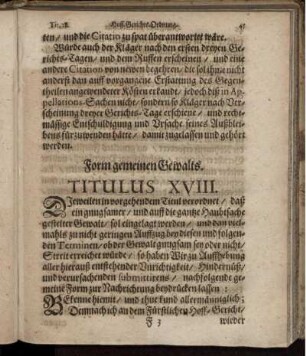 Tit. 18. Hoff-Gerichts-Ordnung. 45
ten / und die Citatio zu spat überantwortet wäre.
Würde auch der Kläger nach den ersten dreyen Ge-
richts-Tagen / und dem Ruffen erscheinen / und eine
andere Citation von newen begehren / die sol ihne nicht
anderst dan auff vorgangene Erstattung des Gegen-
theilen angewendeter Kösten erkandt / jedoch diß in Ap-
pellations-Sachen nicht / sondern so Kläger nach Ver-
scheinung dreyer Gerichts-Tage erschiene / und recht-
mässige Entschuldigung und Ursache seines Außblei-
bens fürzuwenden hätte / damit zugelassen und gehört
werden.
Form gemeinen Gewalts.
TITULUS XVIII.
Dieweilen in vorgehendem Titul verordnet / daß
ein gnugsamer / und auff die gantze Haubtsache
gestelter Gewalt / sol eingelegt werden / und dan viel-
mahls zu nicht geringen Auffzug beydesen und folgen-
den Terminen / ob der Gewalt gnugsam sey oder nicht /
Streit erreicht würde / so haben Wir zu Auffhebung
aller hierauß entstehender Unrichtigkeit / Hindernüß /
und verursachenden submittirens / nachfolgende ge-
meine Form zur Nachrichtung beydrücken lassen:
BEkenne hiemit / und thue kund allermänniglich;
Demnach ich an dem Fürstlichen Hoff-Gericht /
F 3 wieder